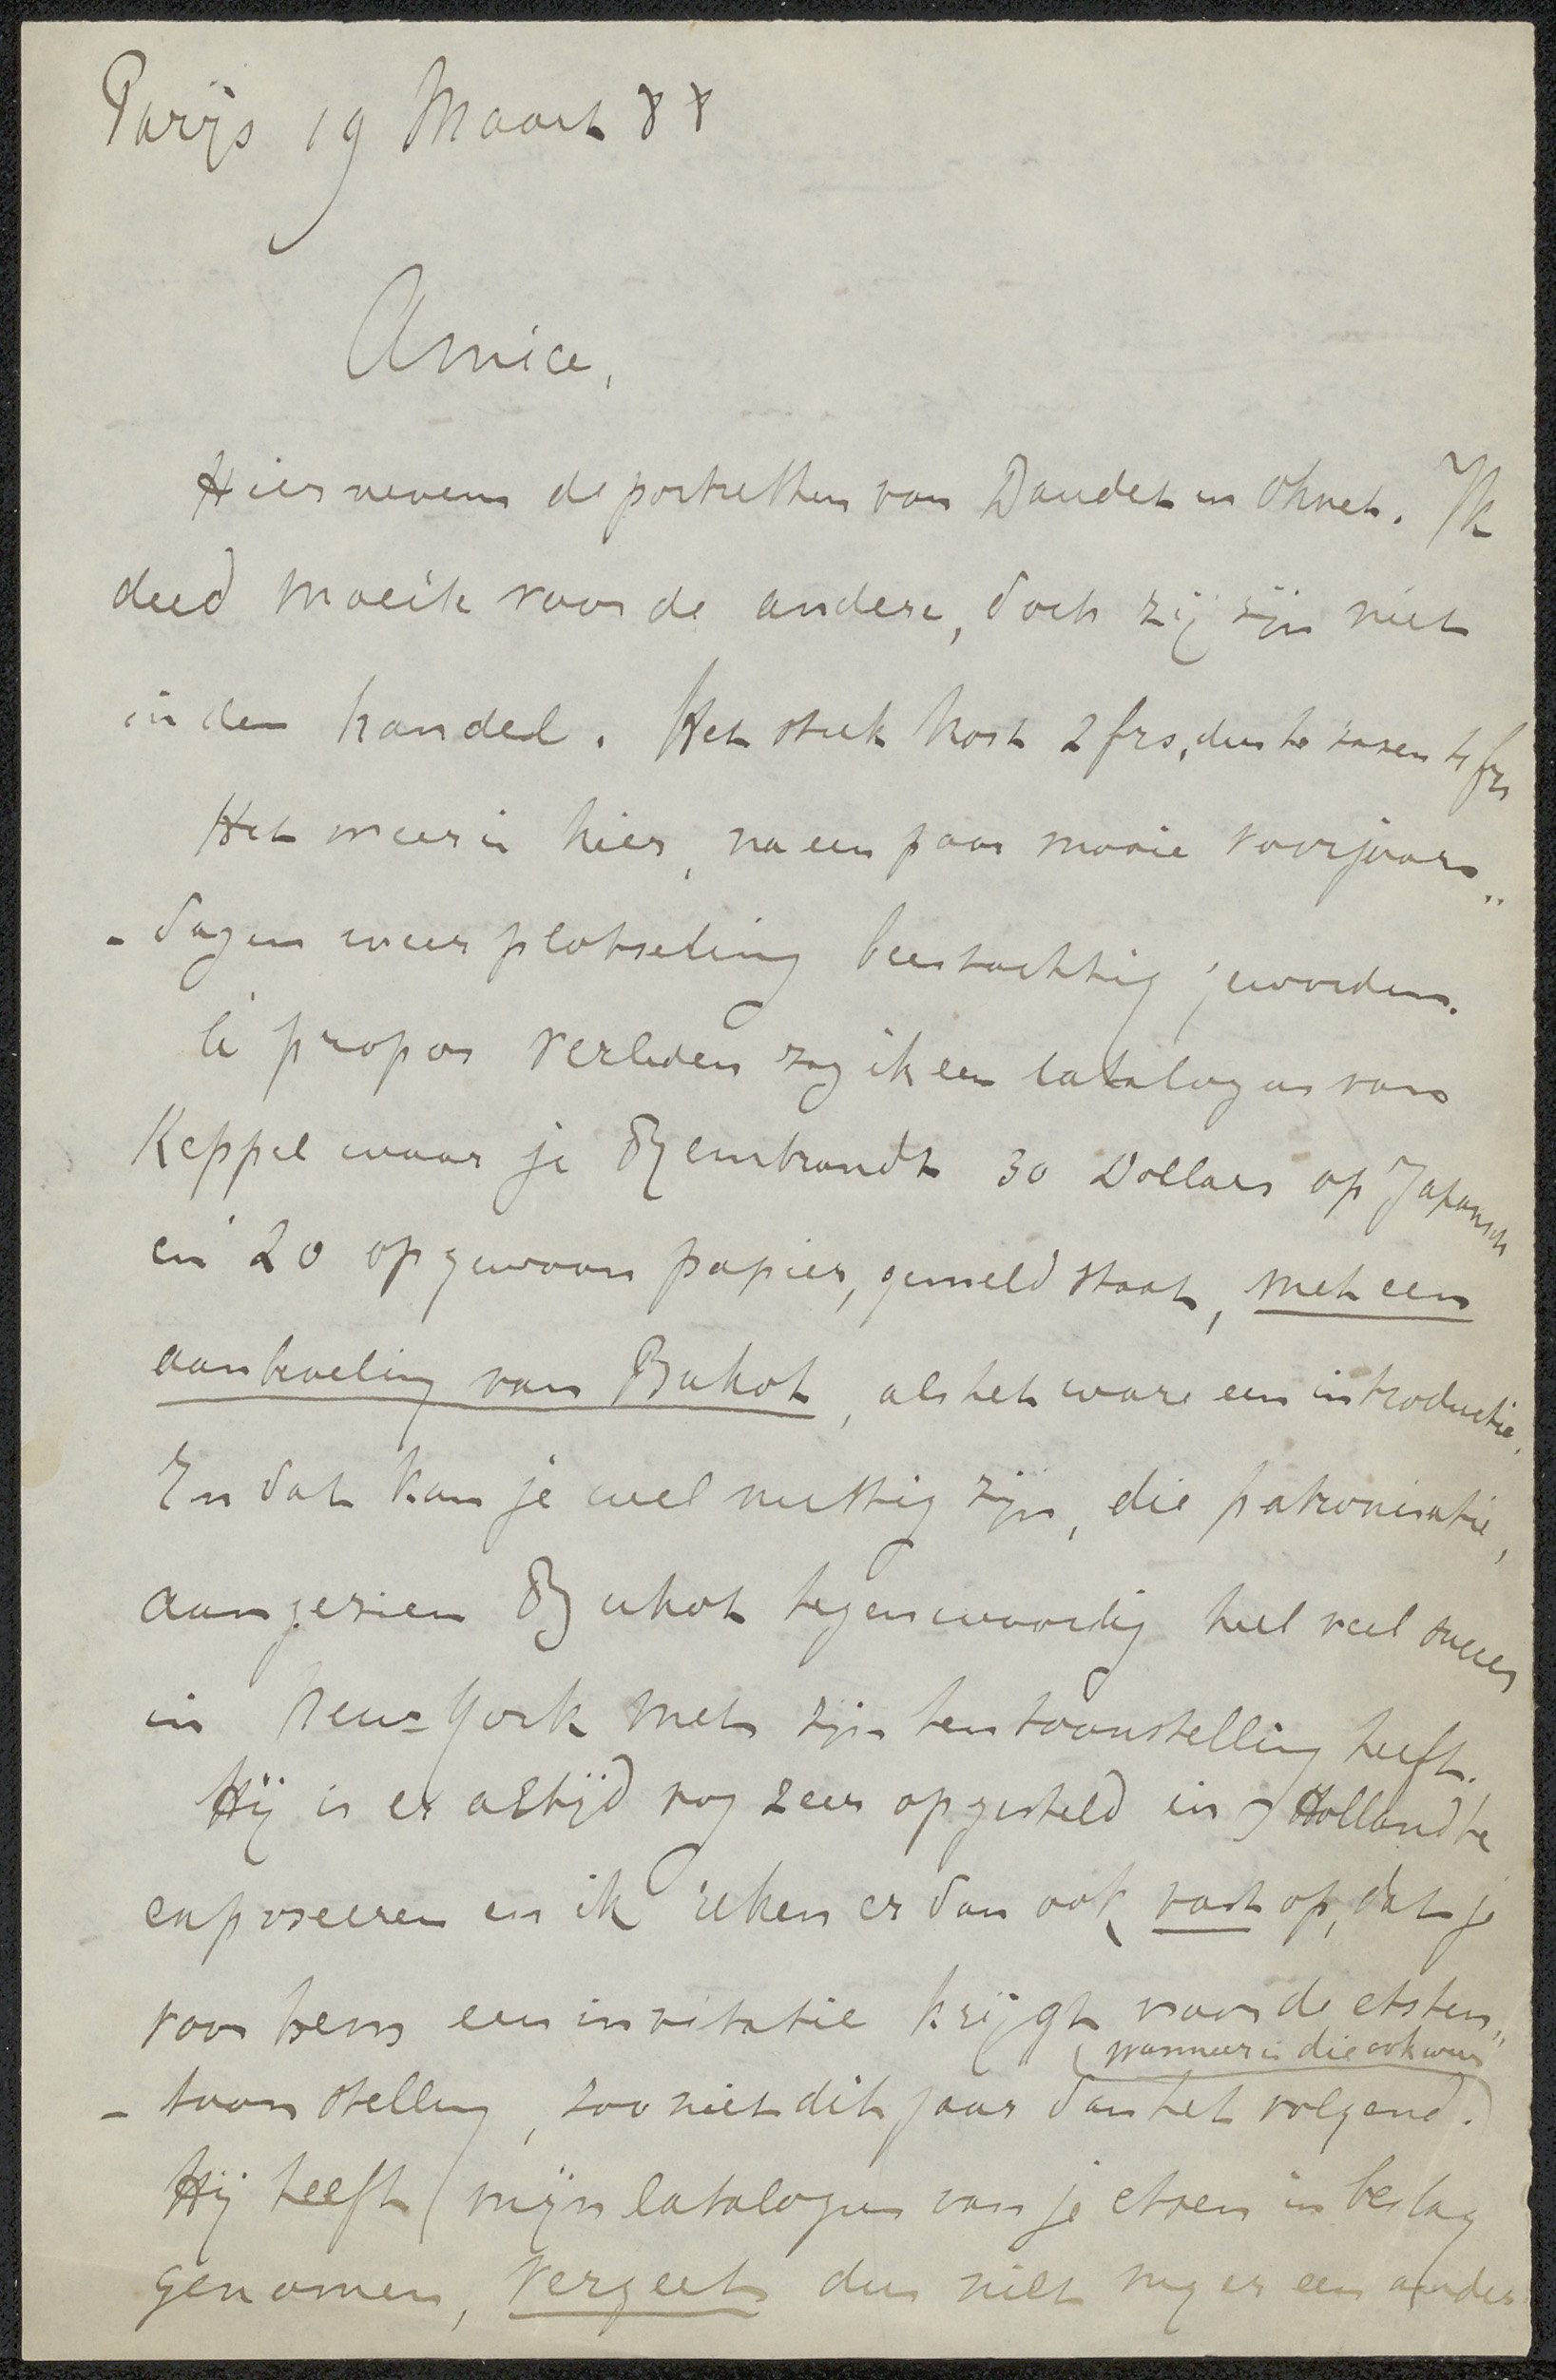 Parijs 19 Maart 88
Amice,
Hiernevens de portretten van Daudet en Ohnet. Ik
deed moeite voor de andere, doch zij zijn niet
in den handel. Het stuk kost 2 frs, dus te zamen 4 frs
Het weer is hier, na een paar mooie voorjaars„
- dagen weer plotseling beestachtig geworden.
à propos verleden zag ik een catalogus van
Keppel waar je Rembrandt 30 Dollars op Japansch
en 20 op gewoon papier, gemeld staat, met een
aanbeveling van Buhot, als het ware een introductie.
En dat kan je wel nuttig zijn, die patronisatie,
aangezien Buhot tegenwoordig heel veel succes
in New-York met zijn tentoonstelling heeft.
Hij is er altijd nog zeer opgesteld in Holland te
exposeeren en ik reken er dan ook vast op, dat je
voor hem een invitatie krijgt voor de etsten„
(wanneer is die ook weer
- toonstelling, zoo niet dit jaar dan het volgend.)
Hij heeft mijn catalogus van je etsen in beslag
genomen, vergeet dus niet mij er een ander